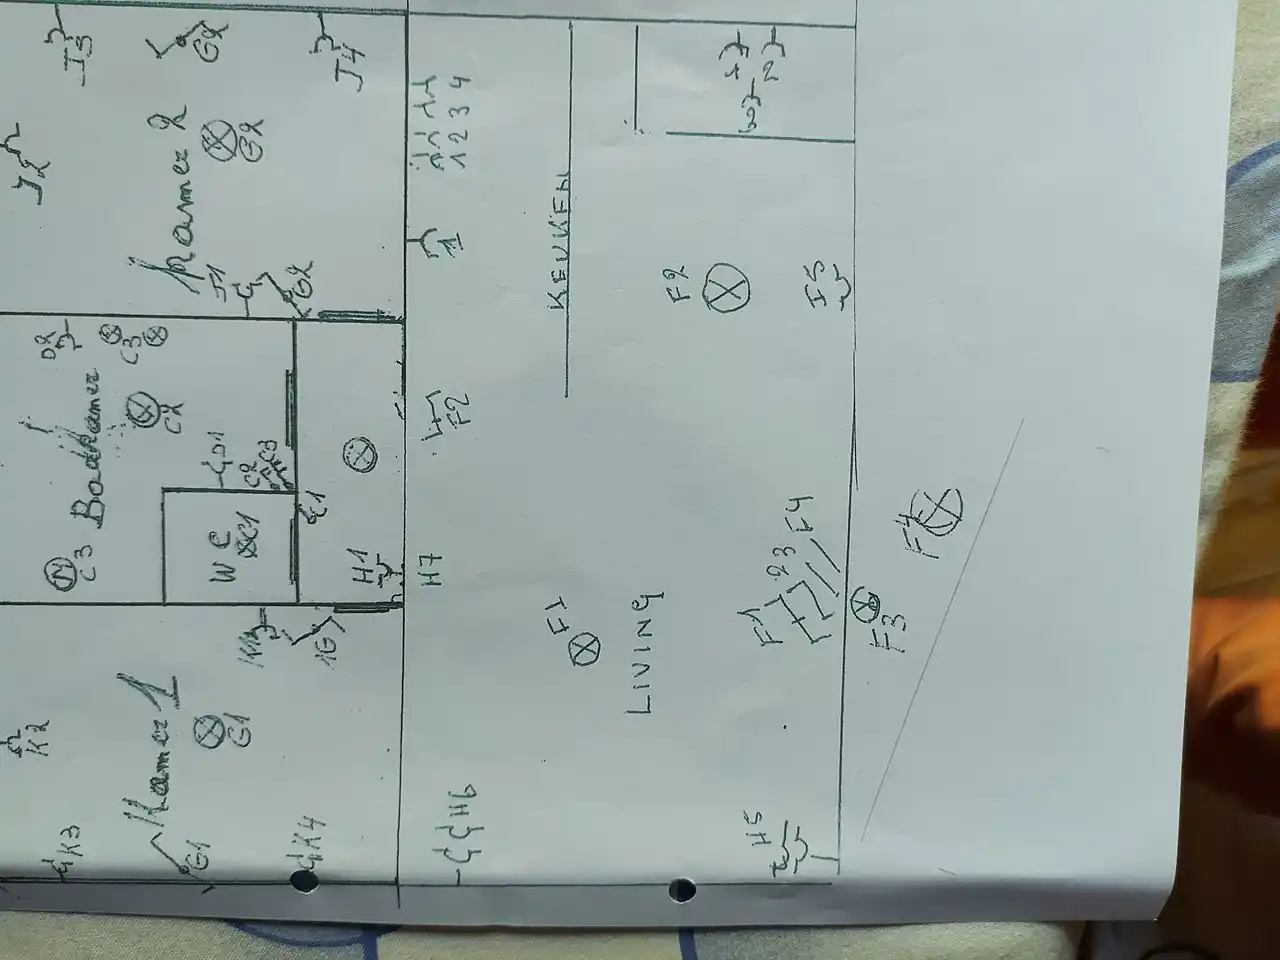 J3
G2
J4
J2
Kamer 2
G2
1 2 3 4
1
KEUKEN
1
2
3
J1
G2
F2
I5
D2
C3
Badkamer
C2
F2
D1
C2
C3
E1
F4
F4
C3
WC
C1
H1
H7
F1
2
3
F1
F3
LIVING
K1
1G
Kamer 1
G1
K2
K3
G1
K4
H6
H5